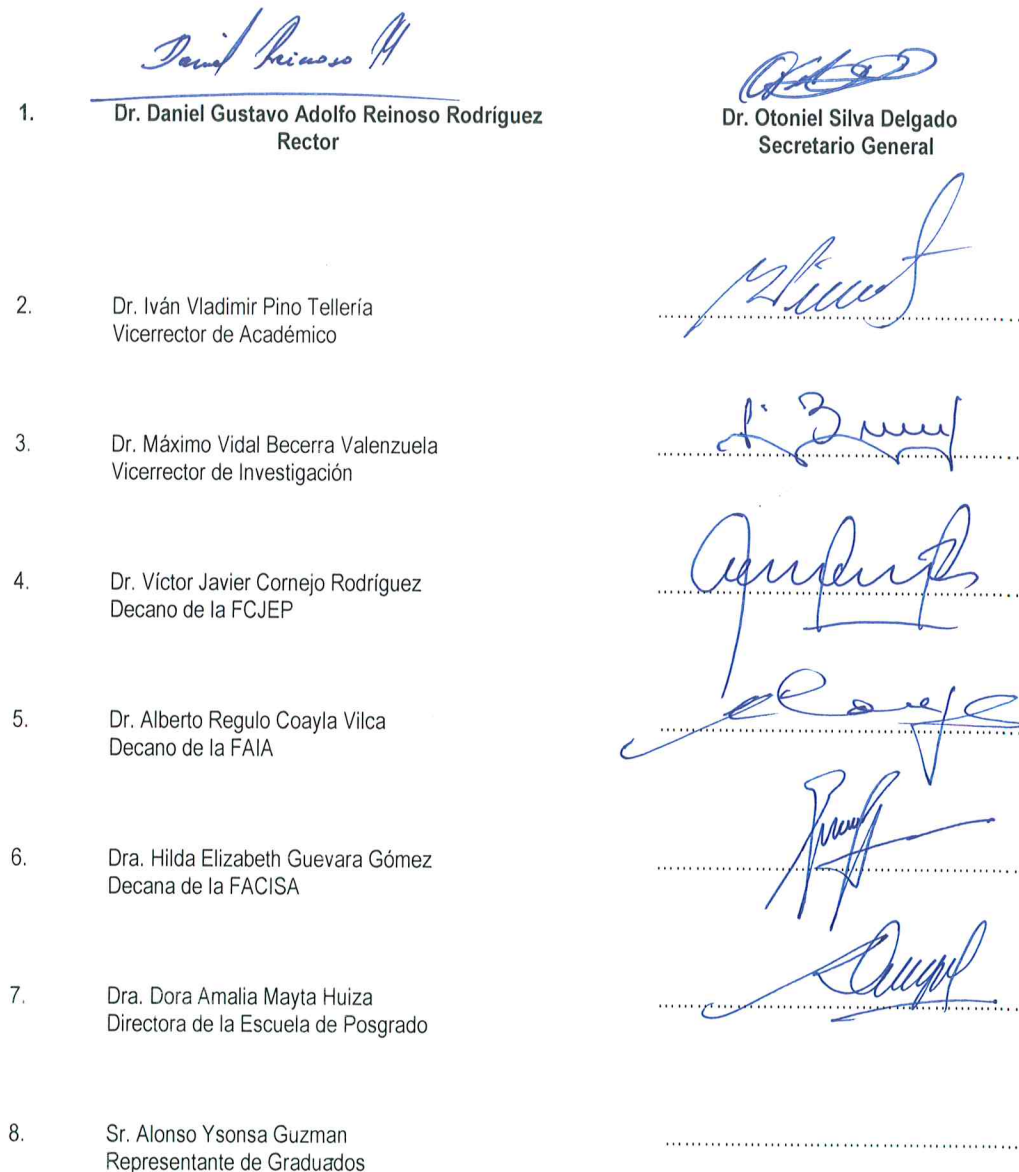 Daniel Reinoso
1. Dr. Daniel Gustavo Adolfo Reinoso Rodríguez
Rector
Dr. Otoniel Silva Delgado
Secretario General
2. Dr. Iván Vladimir Pino Tellería
Vicerrector de Académico
3. Dr. Máximo Vidal Becerra Valenzuela
Vicerrector de Investigación
4. Dr. Víctor Javier Cornejo Rodríguez
Decano de la FCJEP
5. Dr. Alberto Regulo Coayla Vilca
Decano de la FAIA
6. Dra. Hilda Elizabeth Guevara Gómez
Decana de la FACISA
7. Dra. Dora Amalia Mayta Huiza
Directora de la Escuela de Posgrado
8. Sr. Alonso Ysonsa Guzman
Representante de Graduados